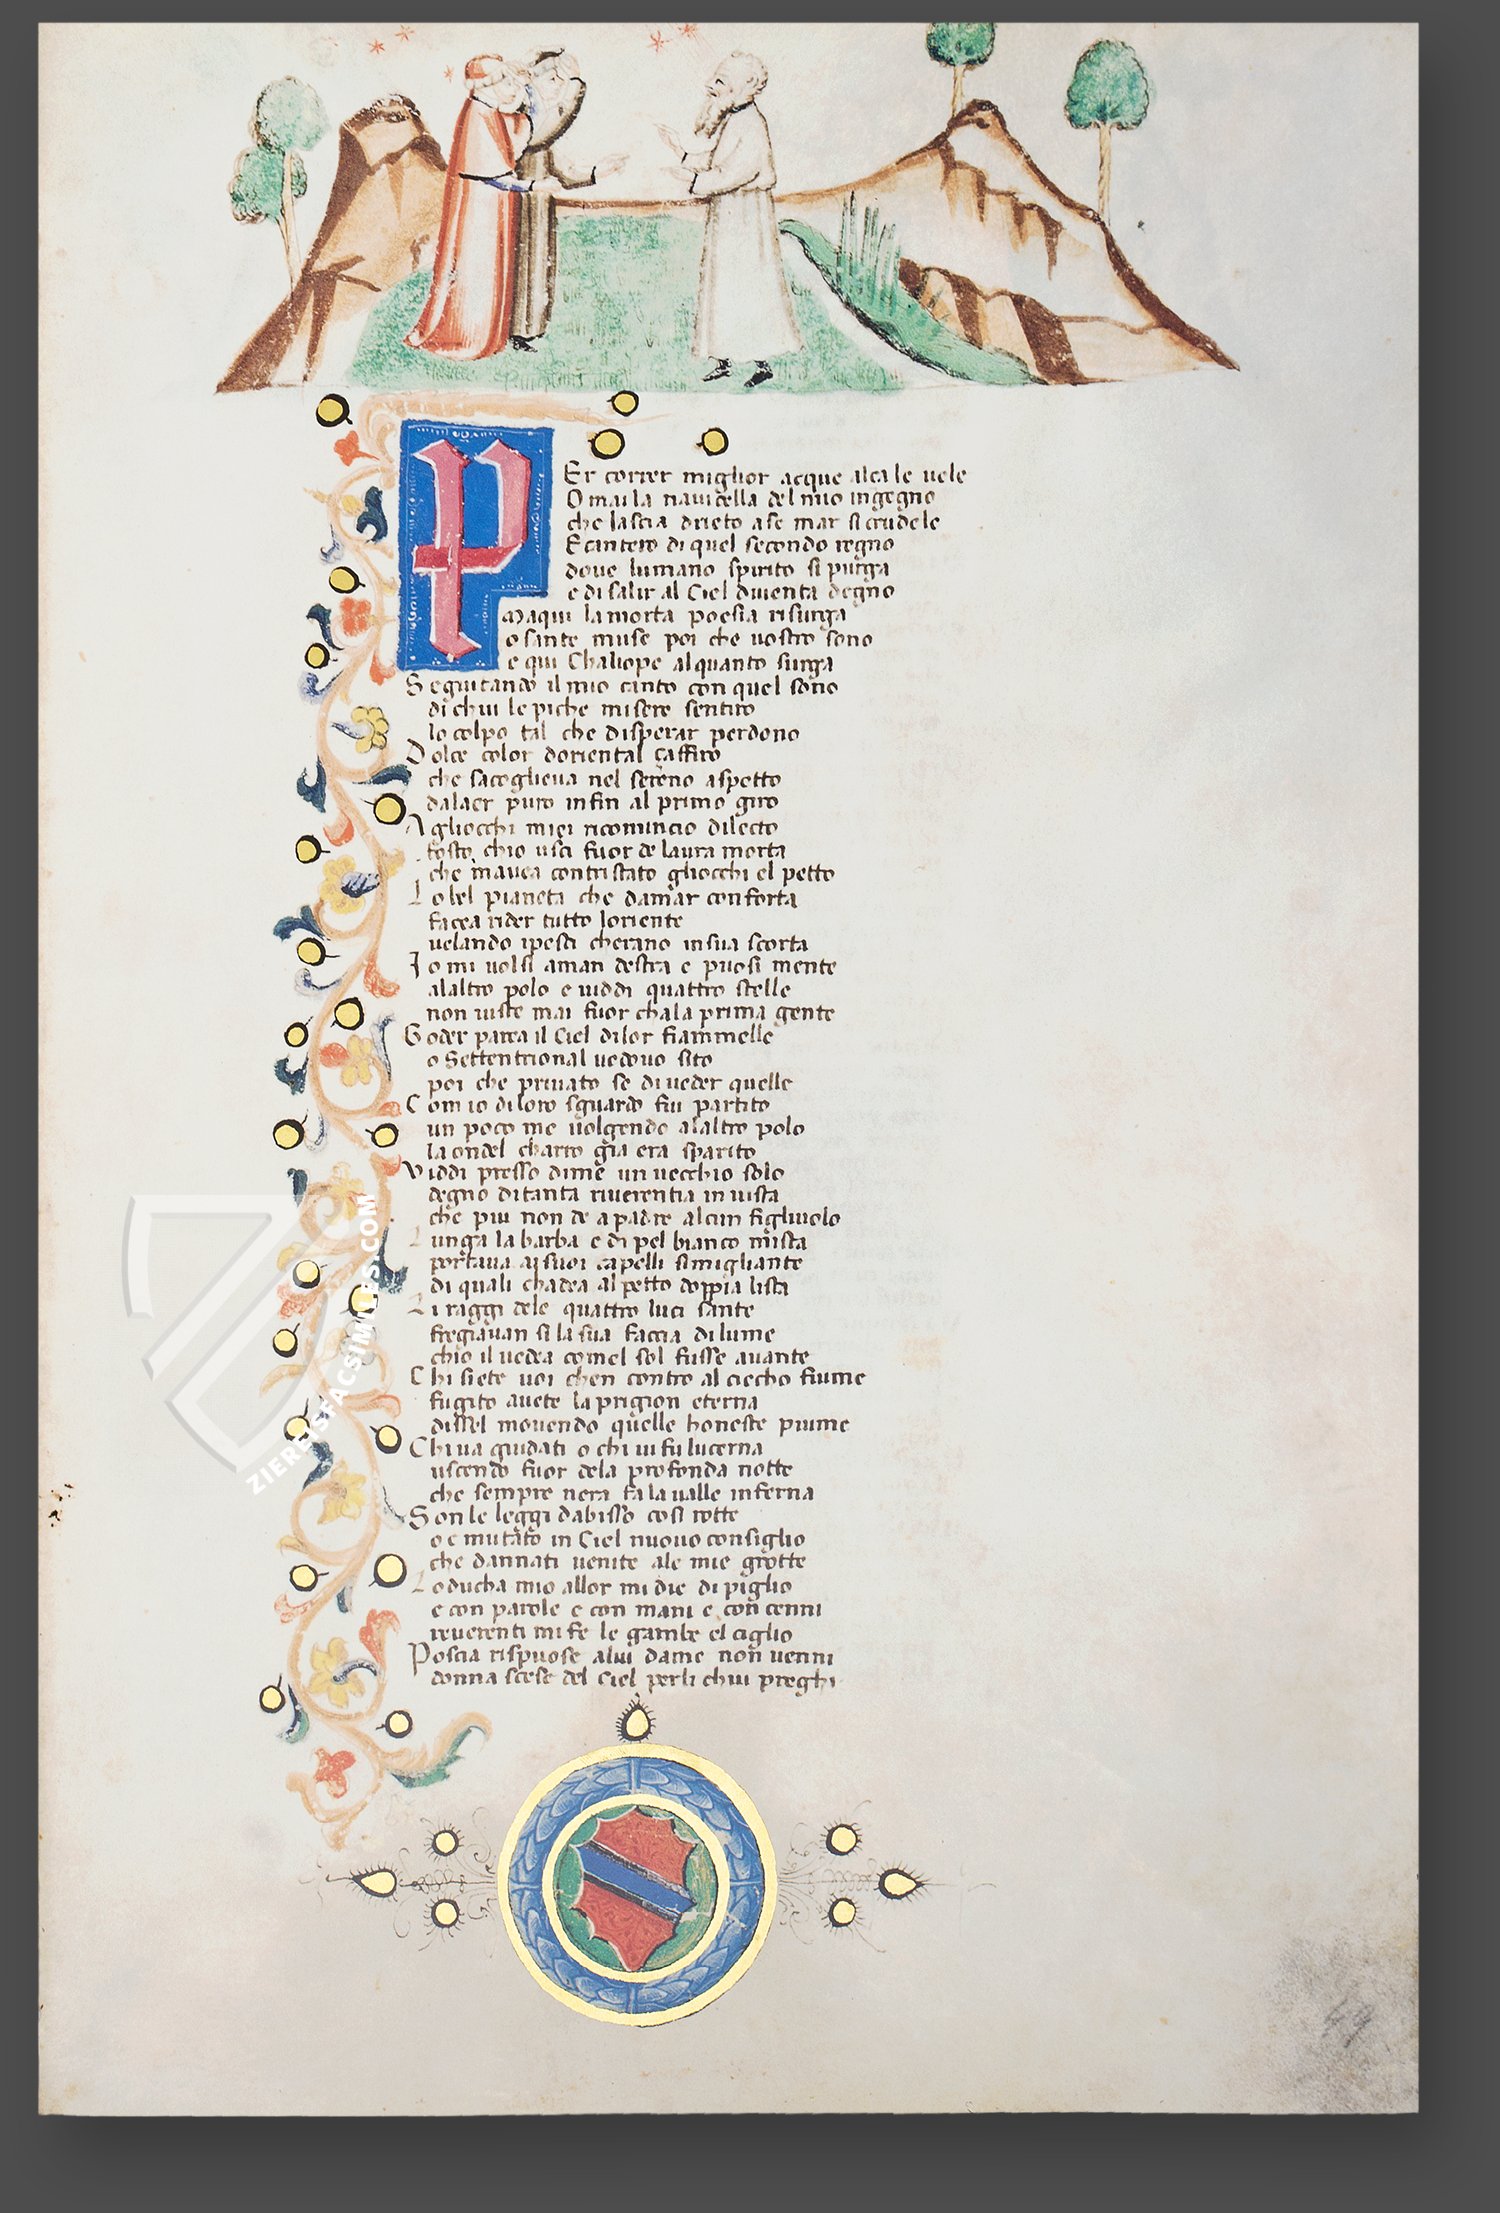 PEr correr miglior acque alca le uele
Omai la nauicella del mio ingegno
che lascia drieto ase mar si crudele
E cantero di quel secondo regno
doue lumano spirito si purga
e di salir al Ciel diuenta degno
Maqui la morta poesia risurga
o sante muse poi che uostro sono
e qui Chaliope alquanto surga
Sequitando il mio canto con quel sono
di chui le piche misere sentiro
lo colpo tal che disperar perdono
Dolce color doriental çaffiro
che sacoglieua nel sereno aspetto
dalaer puro infin al primo giro
Agliocchi miei ricominciò dilecto
tosto chio usci fuor de laura morta
che mauea contristato gliocchi el petto
Lo bel pianeta che damar conforta
facea rider tutto loriente
uelando ipesci cherano insua scorta
Io mi uolsi aman destra e puosi mente
alaltro polo e uiddi quattro stelle
non uiste mai fuor chala prima gente
Goder parea il Ciel dilor fiammelle
o Settentrional uedouo sito
poi che priuato se di ueder quelle
Com io diloro sguardo fui partito
un poco me uolgendo alaltro polo
la ondel charro gia era sparito
Viddi presso dime un uecchio solo
degno ditanta riuerentia in uista
che piu non de a padre alcun figliuolo
Lunga la barba e di pel bianco mista
portaua ai suoi capelli simigliante
di quali chadea al petto doppia lista
Li raggi dele quattro luci sante
fregiauan si la sua faccia di lume
chio il uedea comel sol fusse auante
Chi siete uoi chen contro al ciecho fiume
fugito auete la prigion eterna
dissel mouendo quelle honeste piume
Chi ua guidati o chi ui fu lucerna
uscendo fuor dela profonda notte
che sempre nera fa la ualle inferna
Son le leggi dabisso cosi rotte
o e mutato in Ciel nuouo consiglio
che dannati uenite ale mie grotte
Lo ducha mio allor mi die di piglio
e con parole e con mani e con cenni
reuerenti mi fe le gambe el ciglio
Poscia rispuose alui dame non uenni
donna scese del Ciel perli chui preghi
ZIEREISFACSIMILES.COM
49